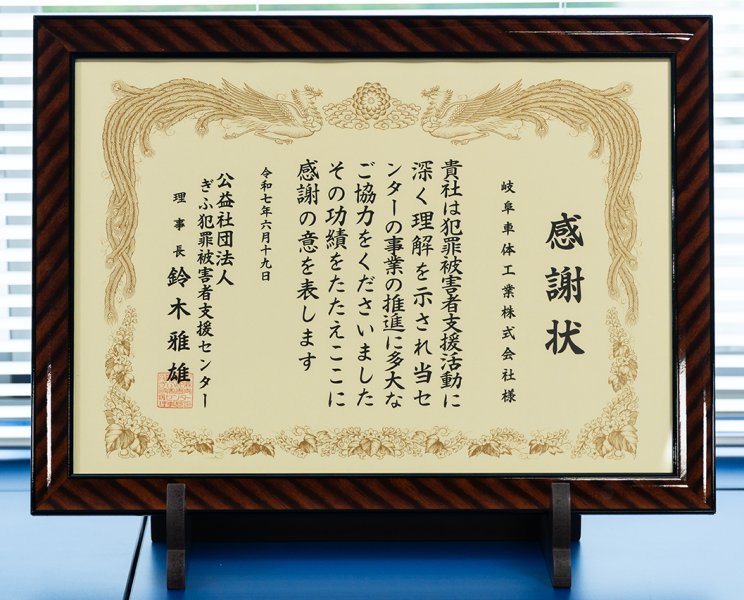 感謝状
岐阜車体工業株式会社様
貴社は犯罪被害者支援活動に
深く理解を示され当セ
ンターの事業の推進に多大な
ご協力をくださいました
その功績をたたえここに
感謝の意を表します
令和七年六月十九日
公益社団法人
ぎふ犯罪被害者支援センター
理事長 鈴木雅雄